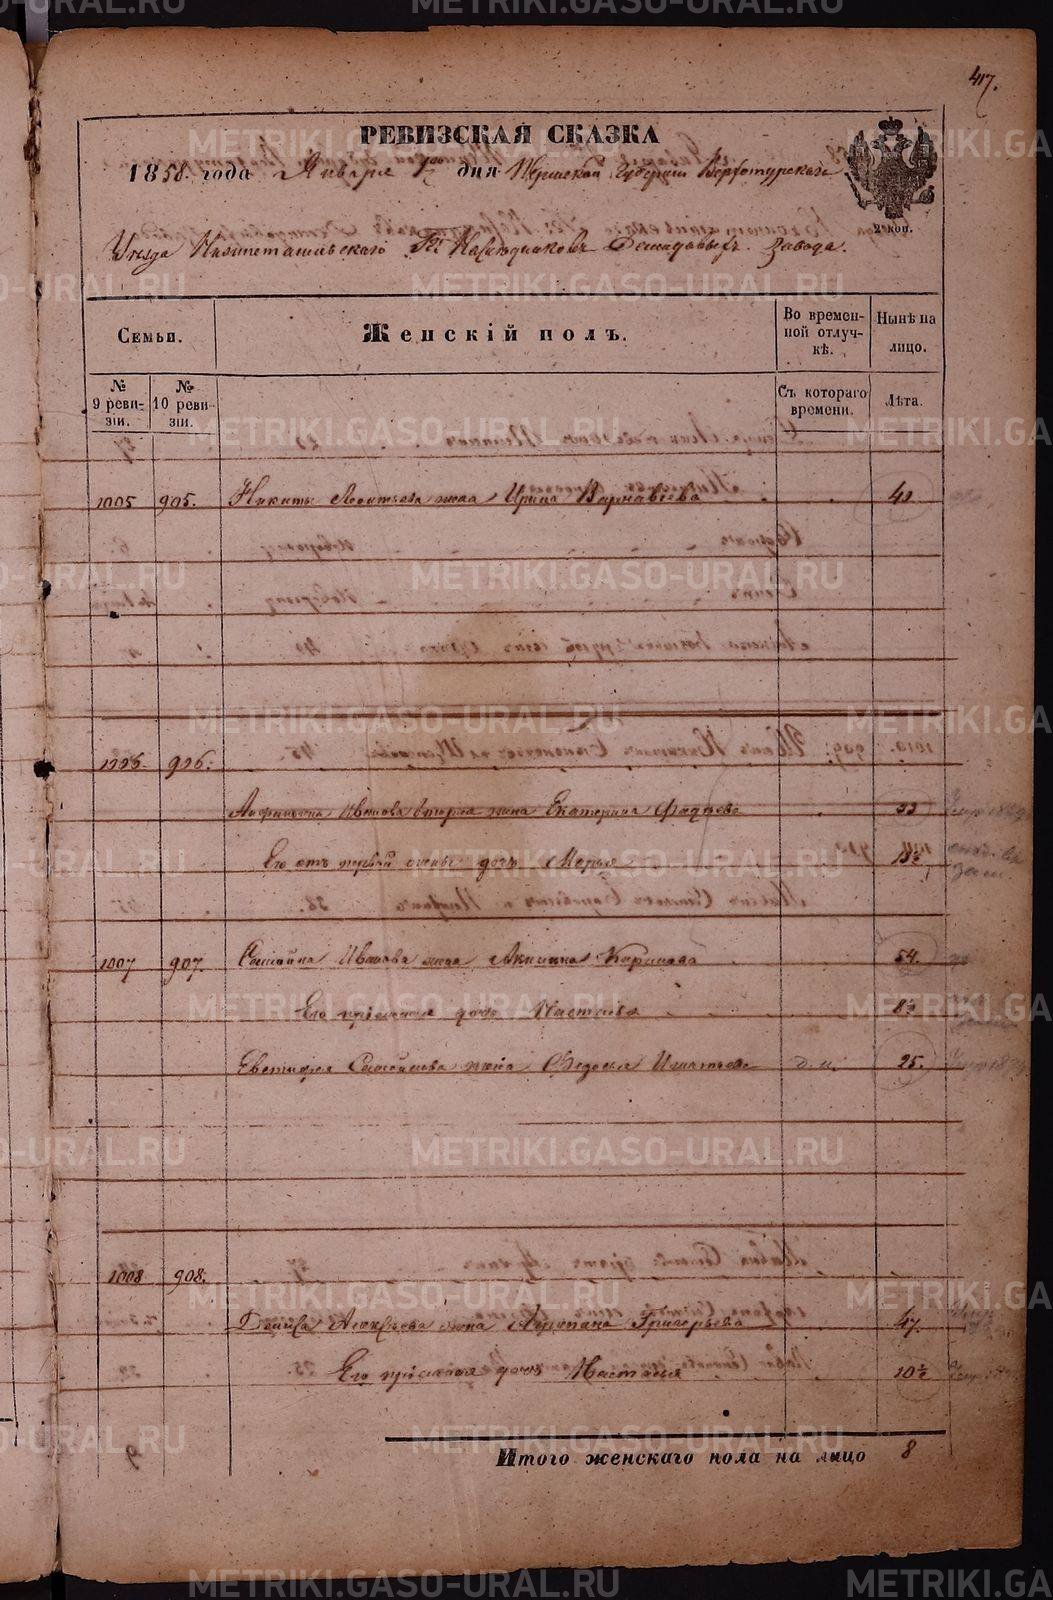 417.
РЕВИЗСКАЯ СКАЗКА
1858 года Января дня Пермской Губернiи Верхотурскаго
2 коп.
Уѣзда Нижнетагильскаго Гг. Наслѣдниковъ Демидовыхъ Завода.
Семьи.
Женскiй полъ.
Во временной отлучкѣ.
Нынѣ на лицо.
№ 9 ревизiи.
№ 10 ревизiи.
Съ котораго времени.
Лѣта.
1005 905. Никиты Леонтьева жена Ирина Варнавiева 40
1006 906.
Ивanова вторая жена Екатерина Фадѣева 33
Его отъ первой жены дочь Марья
1007 907. Самойла Иванова жена Акилина Карпова 54.
Его прiемная дочь Настасья 8½
Самойлова жена Федосья Игнатьева 25.
1008 908.
Дениса Алексѣева жена Григорьева 47.
Его прiемная дочь Настасья 10½
Итого женскаго пола на лицо 8
METRIKI.GASO-URAL.RU